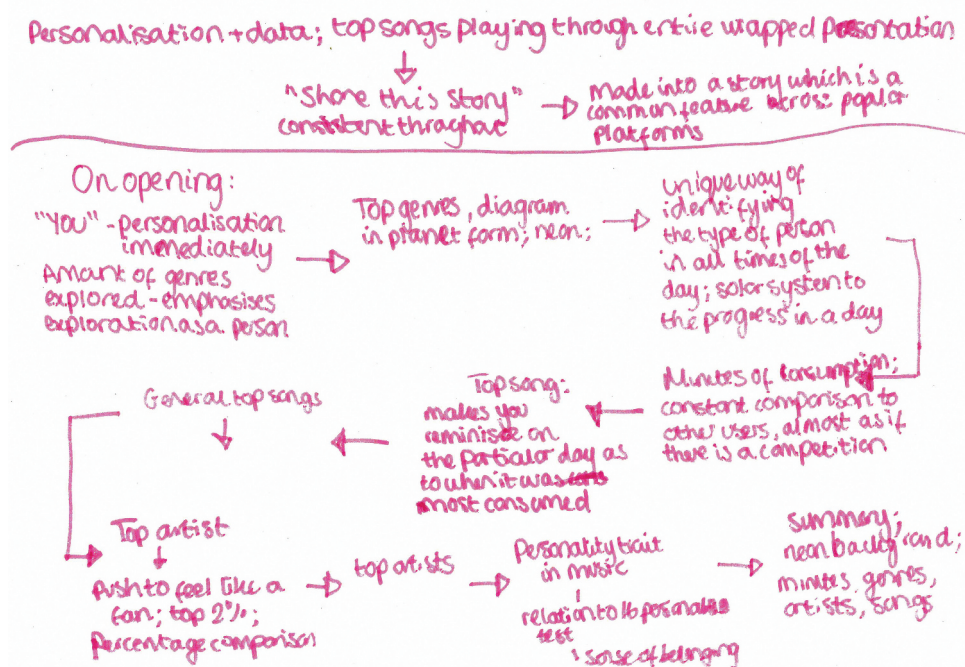 Personalisation + data; top songs playing through entire wrapped presentation
"Share this story"
consistent throughout
made into a story which is a
common feature across popular
platforms
On opening:
"You" - personalisation
immediately
Amount of genres
explored - emphasises
exploration as a person
Top genres, diagram
in planet form; neon;
unique way of
identifying
the type of person
in all times of the
day; solar system to
the progress in a day
Minutes of consumption;
constant comparison to
other users, almost as if
there is a competition
Top song:
makes you
reminisce on
the particular day as
to when it was
most consumed
General top songs
Top artist
Push to feel like a
fan; top 2%;
percentage comparison
top artists
Personality trait
in music
relation to 16 personalities
test
: sense of belonging
summary;
neon background;
minutes, genres,
artists, songs